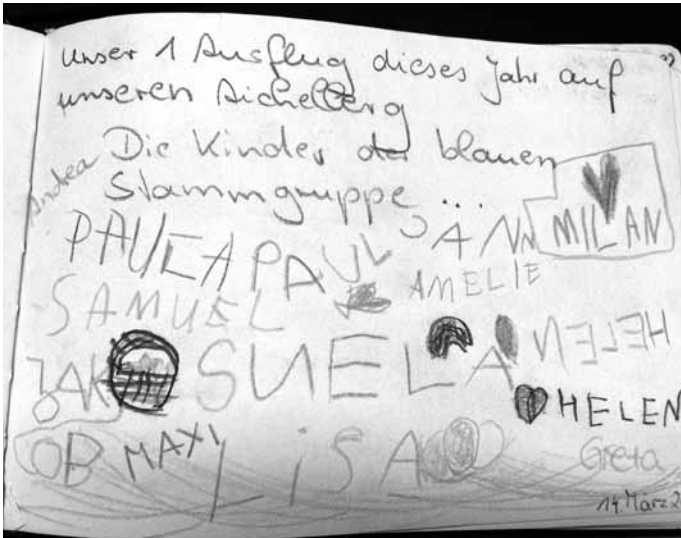 unser 1 Ausflug dieses Jahr auf
unseren Aichelberg
Die Kinder der blauen
Stammgruppe ...
Andrea
PAULA PAUL JANN MILAN
AMELIE
SAMUEL
HELEN
JAK SUELA
HELEN
OB MAXI LiSA
Greta
14. März 2